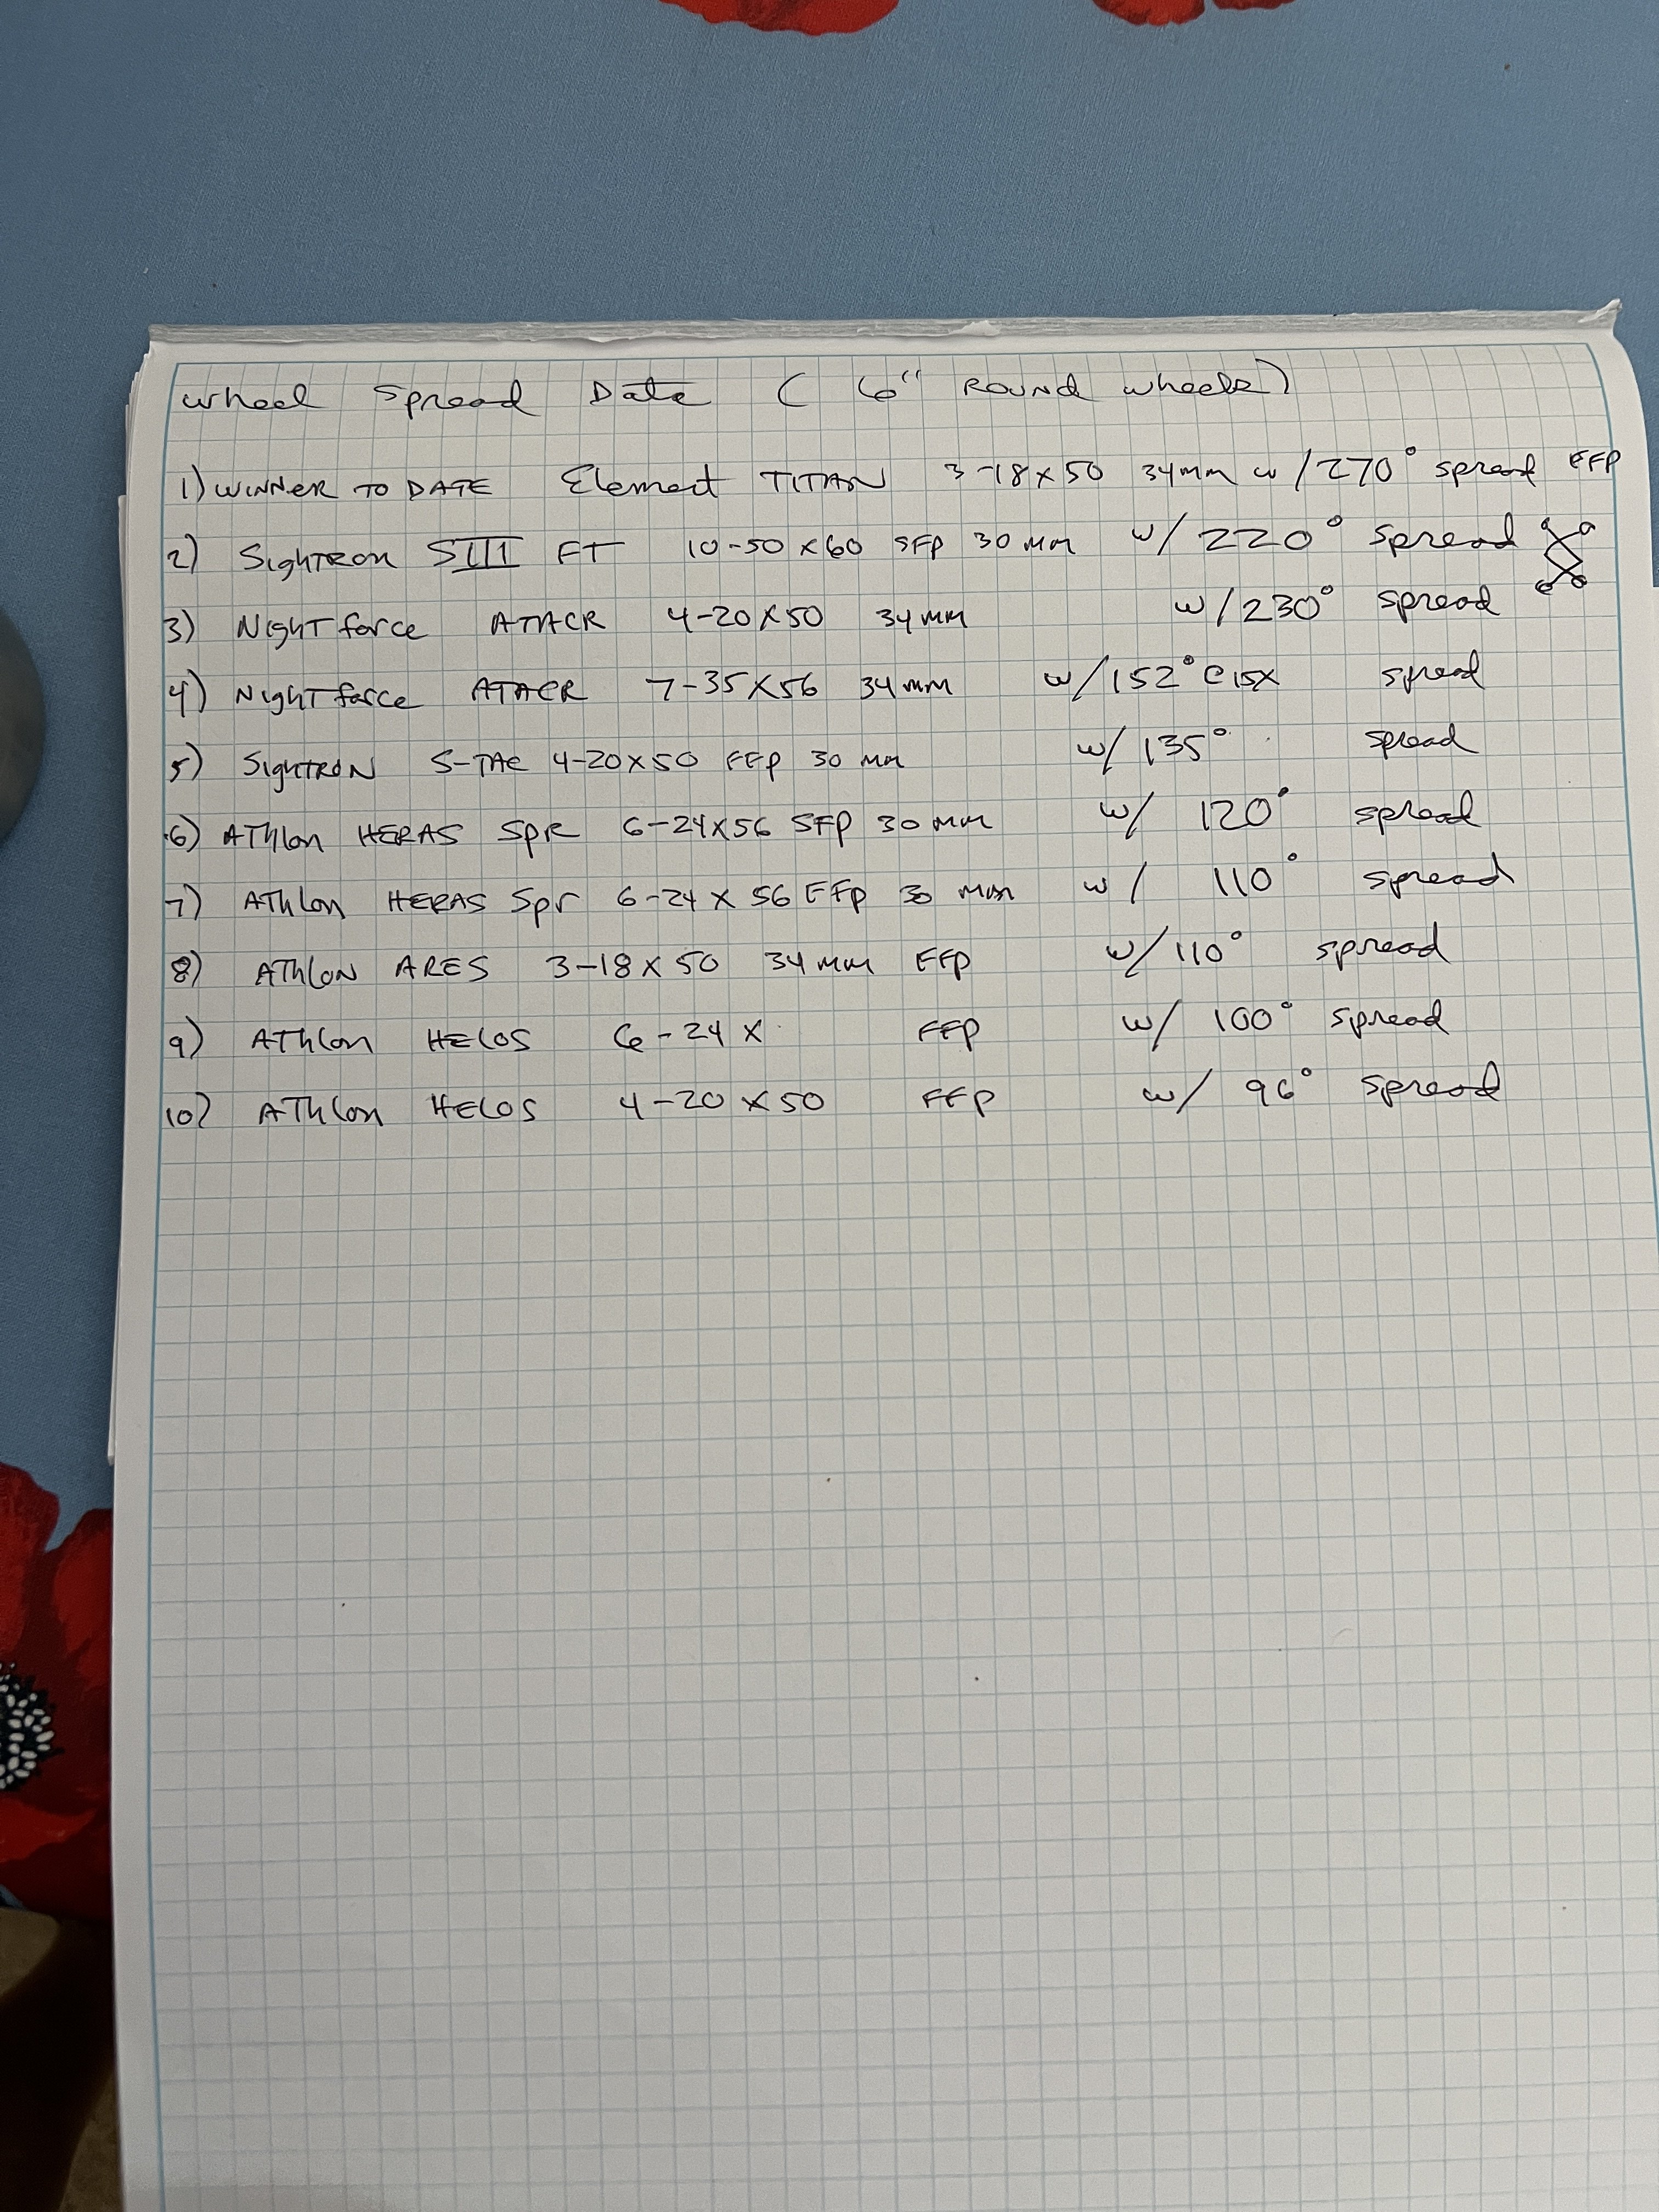 Wheel Spread Data ( 6" ROUND wheels)
1) WINNER TO DATE Element TITAN 3-18x50 34mm w/270° spread FFP
2) SIghTRon SIII FT 10-50x60 SFP 30 mm w/ 220° Spread
3) NighTforce ATACR 4-20x50 34mm w/230° spread
4) NighTforce ATACR 7-35x56 34mm w/152° @15x spread
5) SIghTRON S-TAC 4-20x50 FFP 30 mm w/ 135° spread
6) AThlon HERAS SPR 6-24x56 SFP 30 mm w/ 120° spread
7) AThlon HERAS Spr 6-24 x 56 FFP 30 mm w/ 110° spread
8) AThlON ARES 3-18x50 34mm FFP w/110° spread
9) AThlon HELOS 6-24 x FFP w/ 100° spread
10) AThlon HELOS 4-20 x 50 FFP w/ 96° Spread